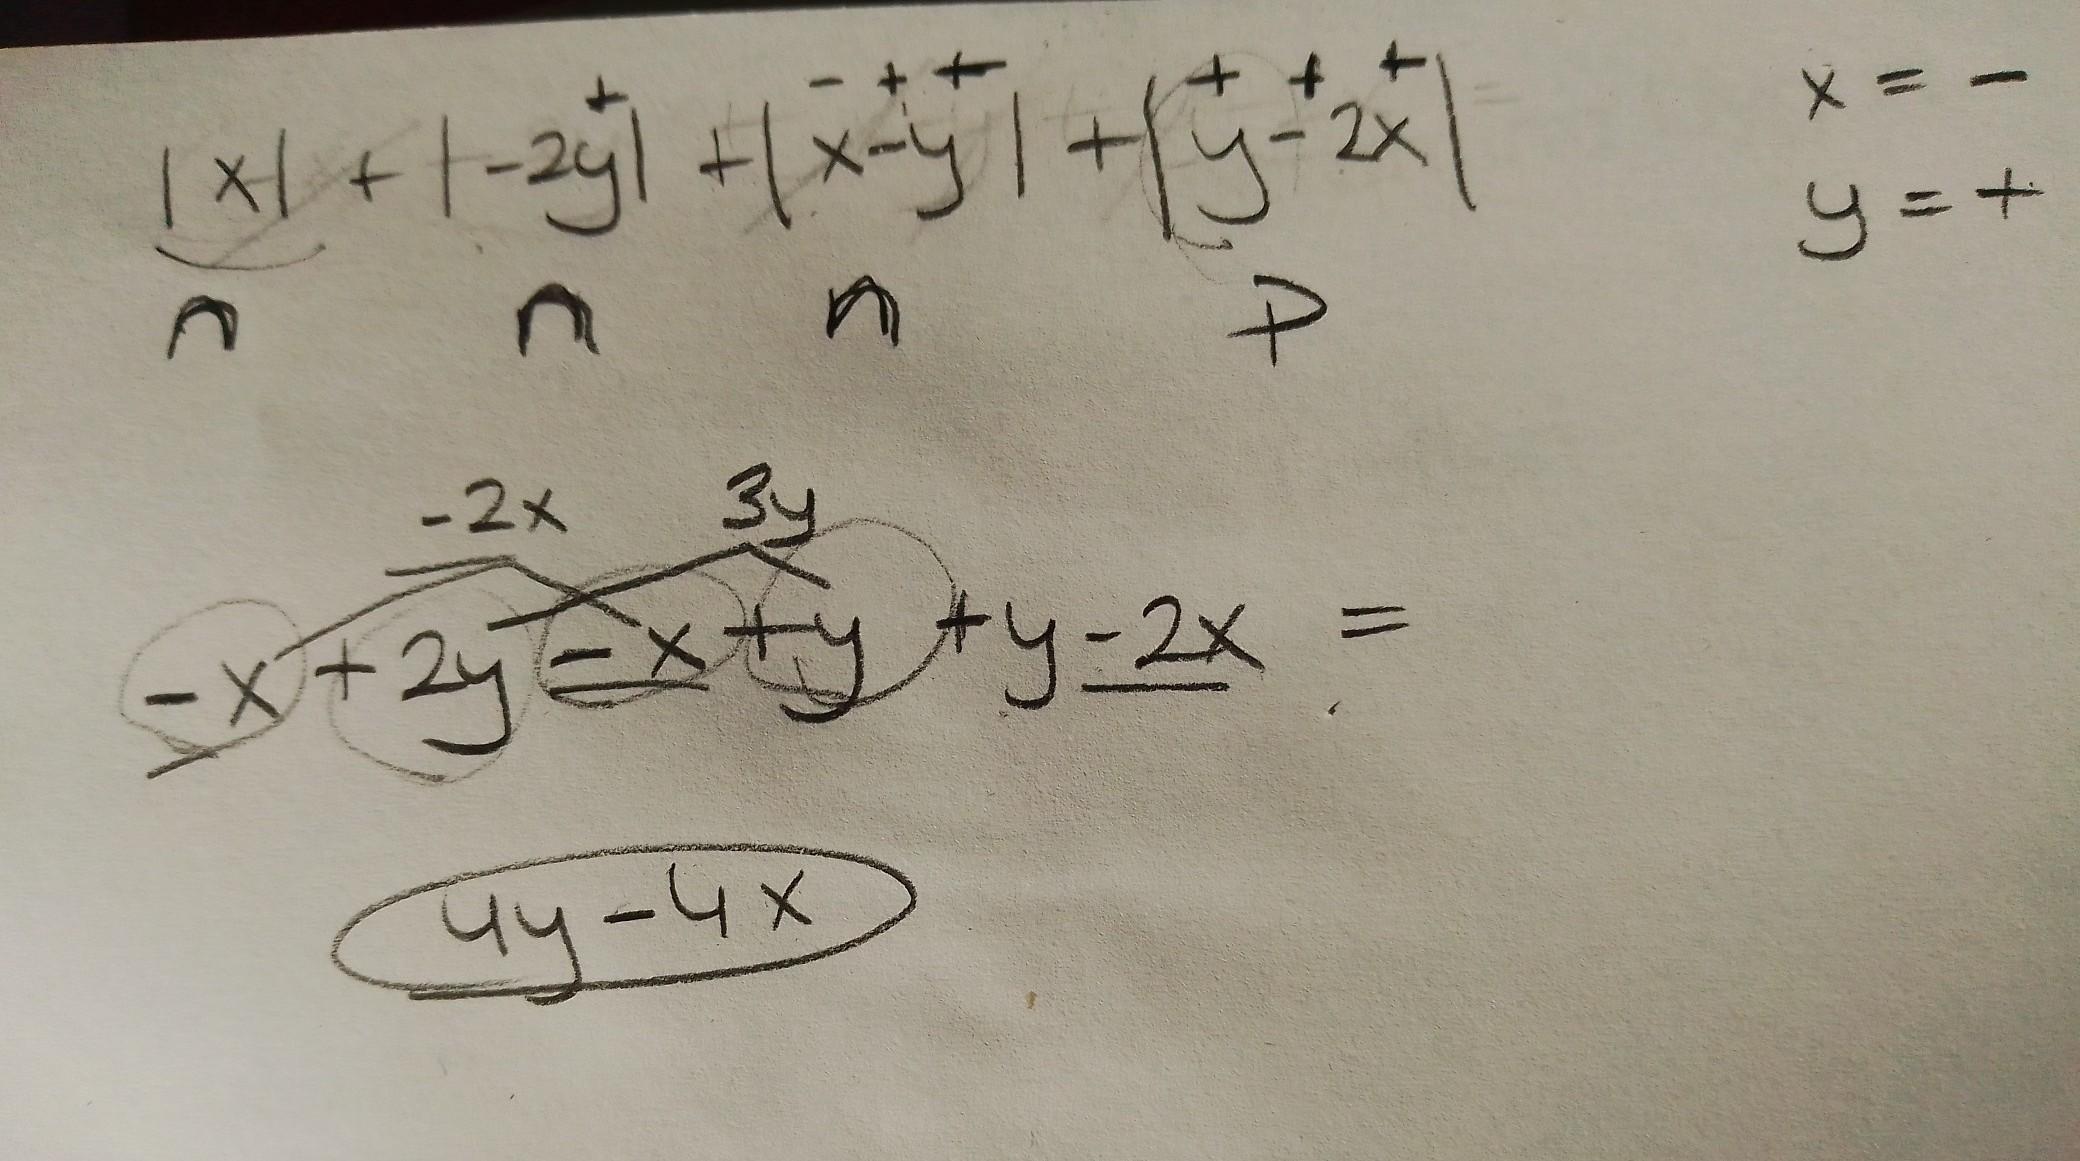 - + + + + + +
|x| + |-2y| + |x-y| + |y-2x|
x = -
y = +
n n n p
-2x 3y
-x + 2y - x + y + y - 2x =
4y - 4x